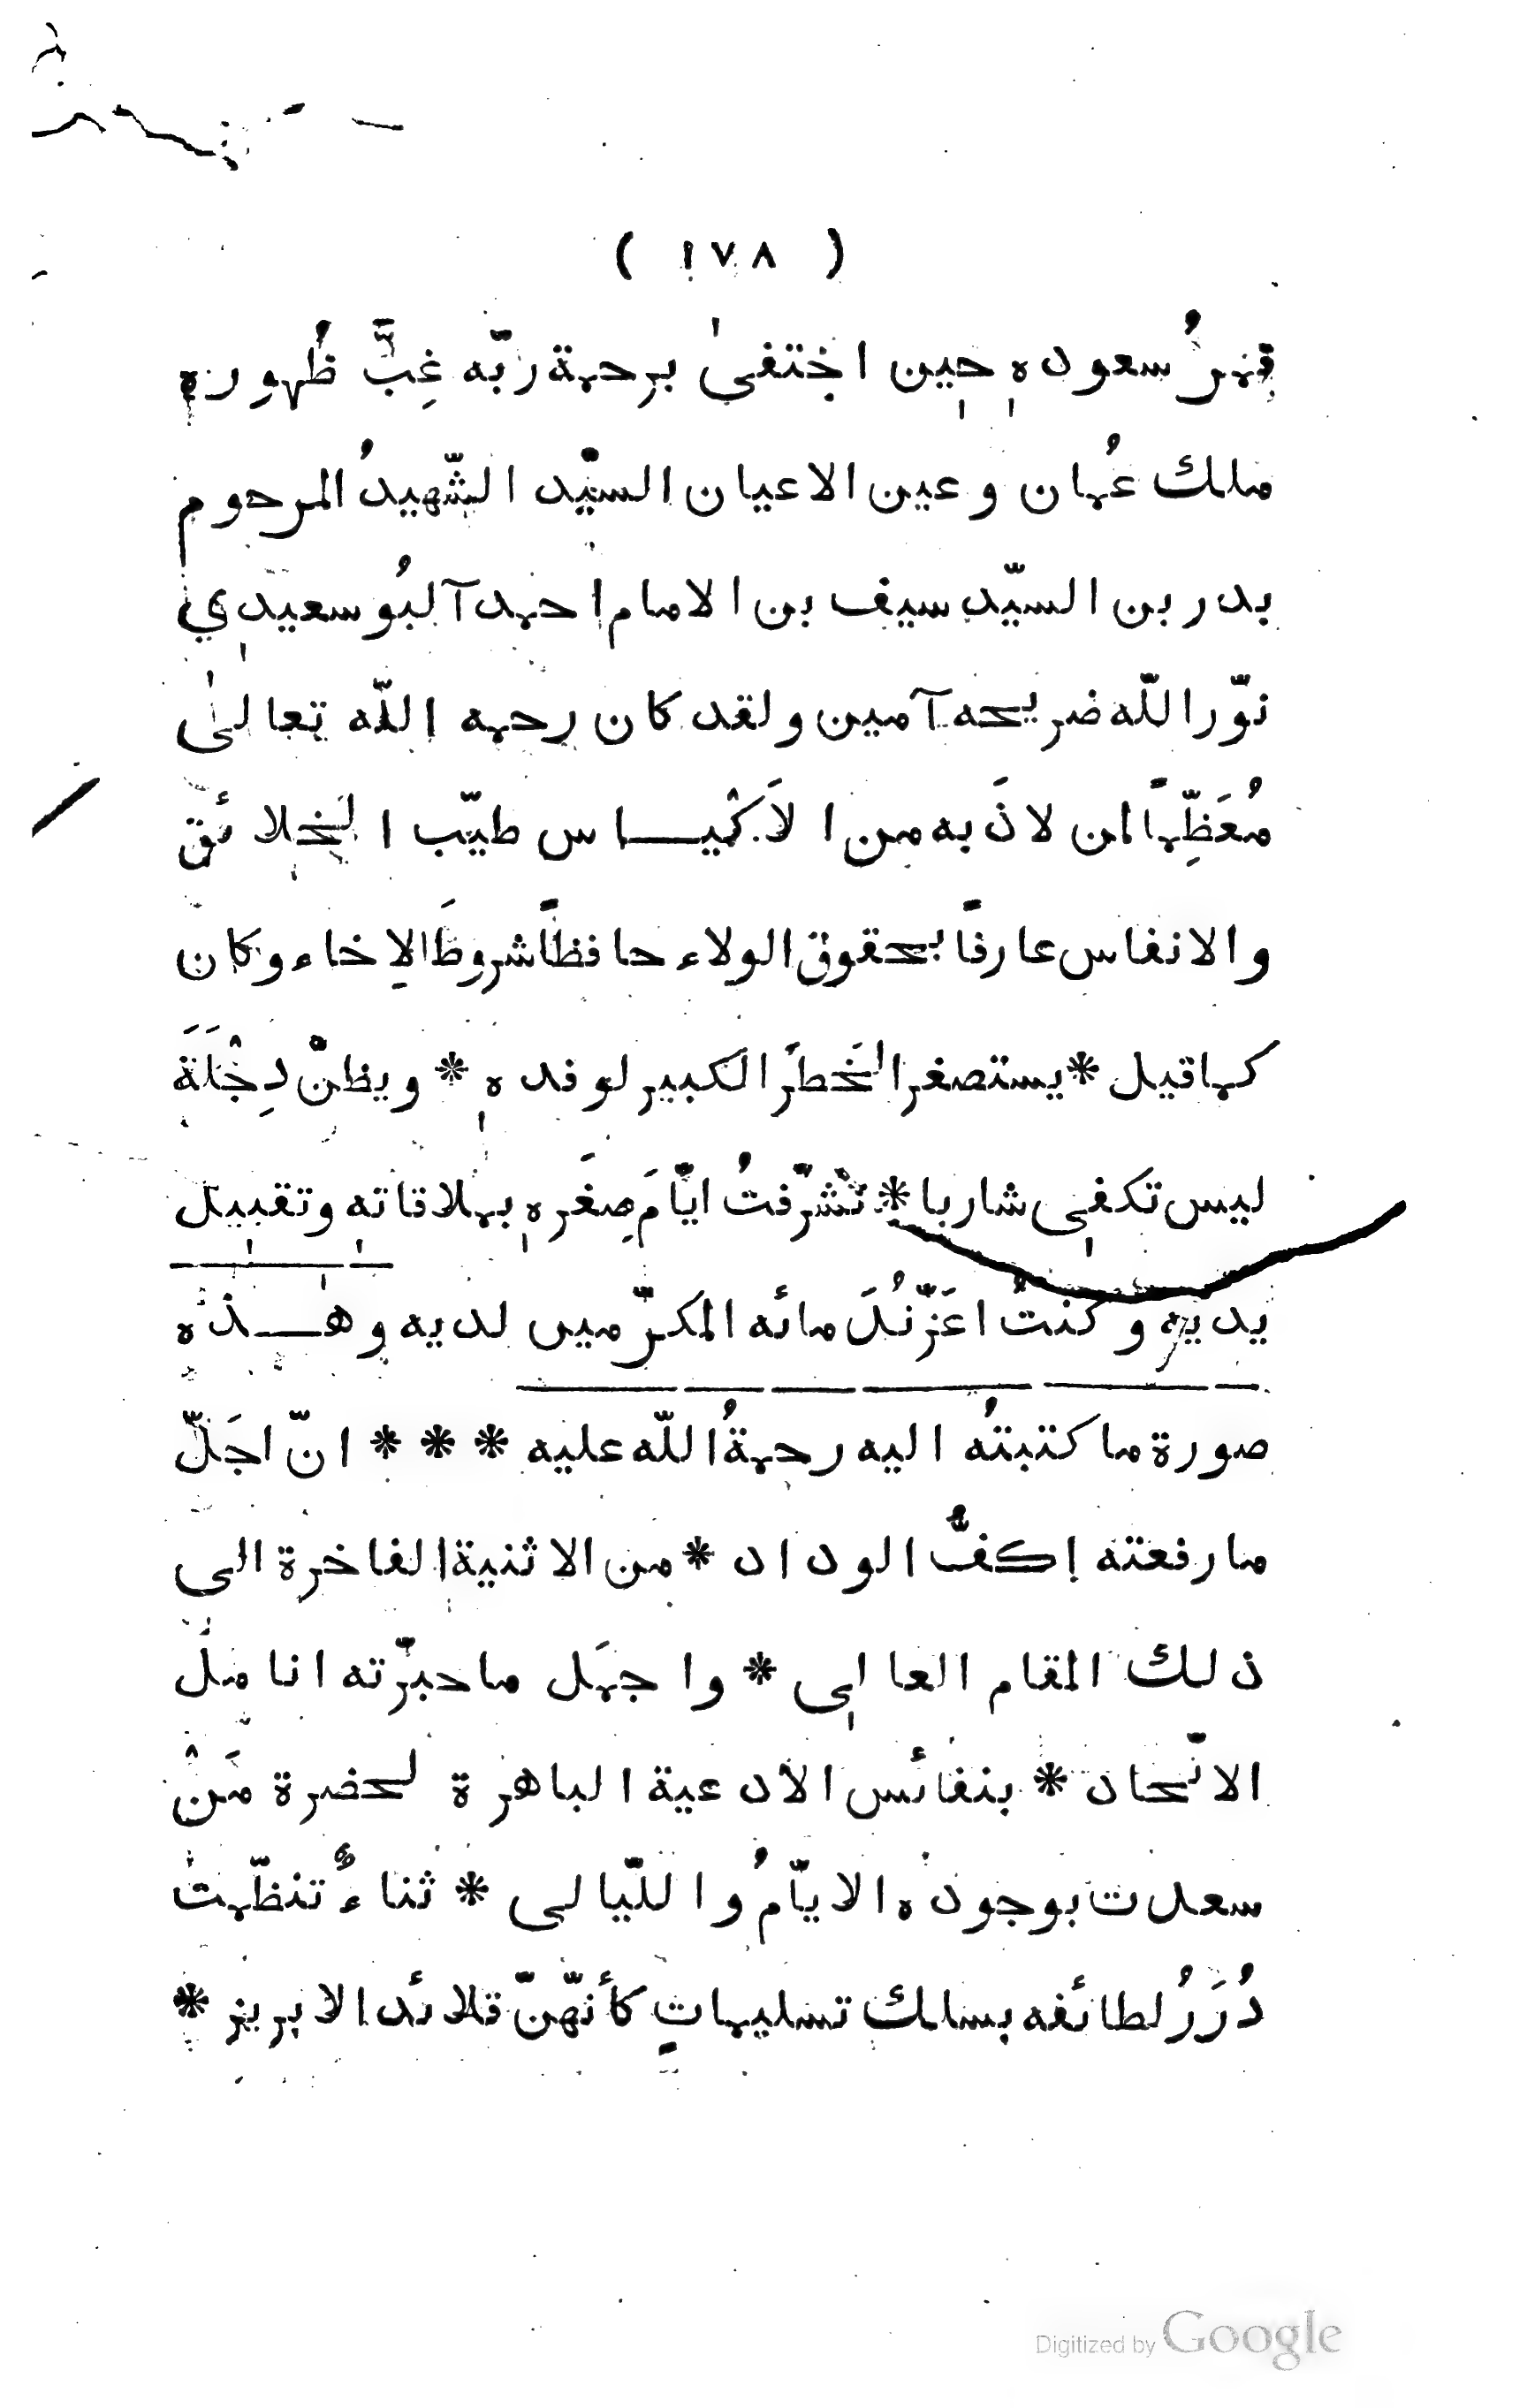 ( ١٧٨ )
قمرُ سعوده حين اختفىٰ برحمة ربّه غِبَّ ظُهوره
ملك عُمان وعين الاعيان السيّد الشّهيدُ المرحوم
بدر بن السيّد سيف بن الامام احمد آلبُوسعيدي
نوّر اللّه ضريحه آمين ولقد كان رحمه اللّه تعالىٰ
مُعَظِّماً لمن لاذَ به من الاَكْياس طيّب الخَلائق
والانفاس عارفاً بحقوق الولاء حافظاً شروطَ الاِخاء وكان
كما قيل * يستصغر الخَطَرَ الكبير لوفده * ويظنّ دِجْلَةَ
ليس تكفي شاربا * تَشَرّفتُ ايّامَ صِغَره بملاقاته وتقبيل
يديه وكنتُ اعَزّ نُدَمائه المكرّمين لديه وهذه
صورة ما كتبتُه اليه رحمةُ اللّه عليه * * * انّ اجَلّ
ما رفعته اكفُّ الوداد * من الاثنية الفاخرة الى
ذلك المقام العالي * واجمَل ما حبّرته انامل
الاتّحاد * بنفائس الادعية الباهرة لحضرة مَنْ
سعدت بوجوده الايّامُ واللّيالي * ثناءٌ تنظّمت
دُرَرُ لطائفه بسلك تسليماتٍ كأنهّنّ قلائد الابريز *
Digitized by Google